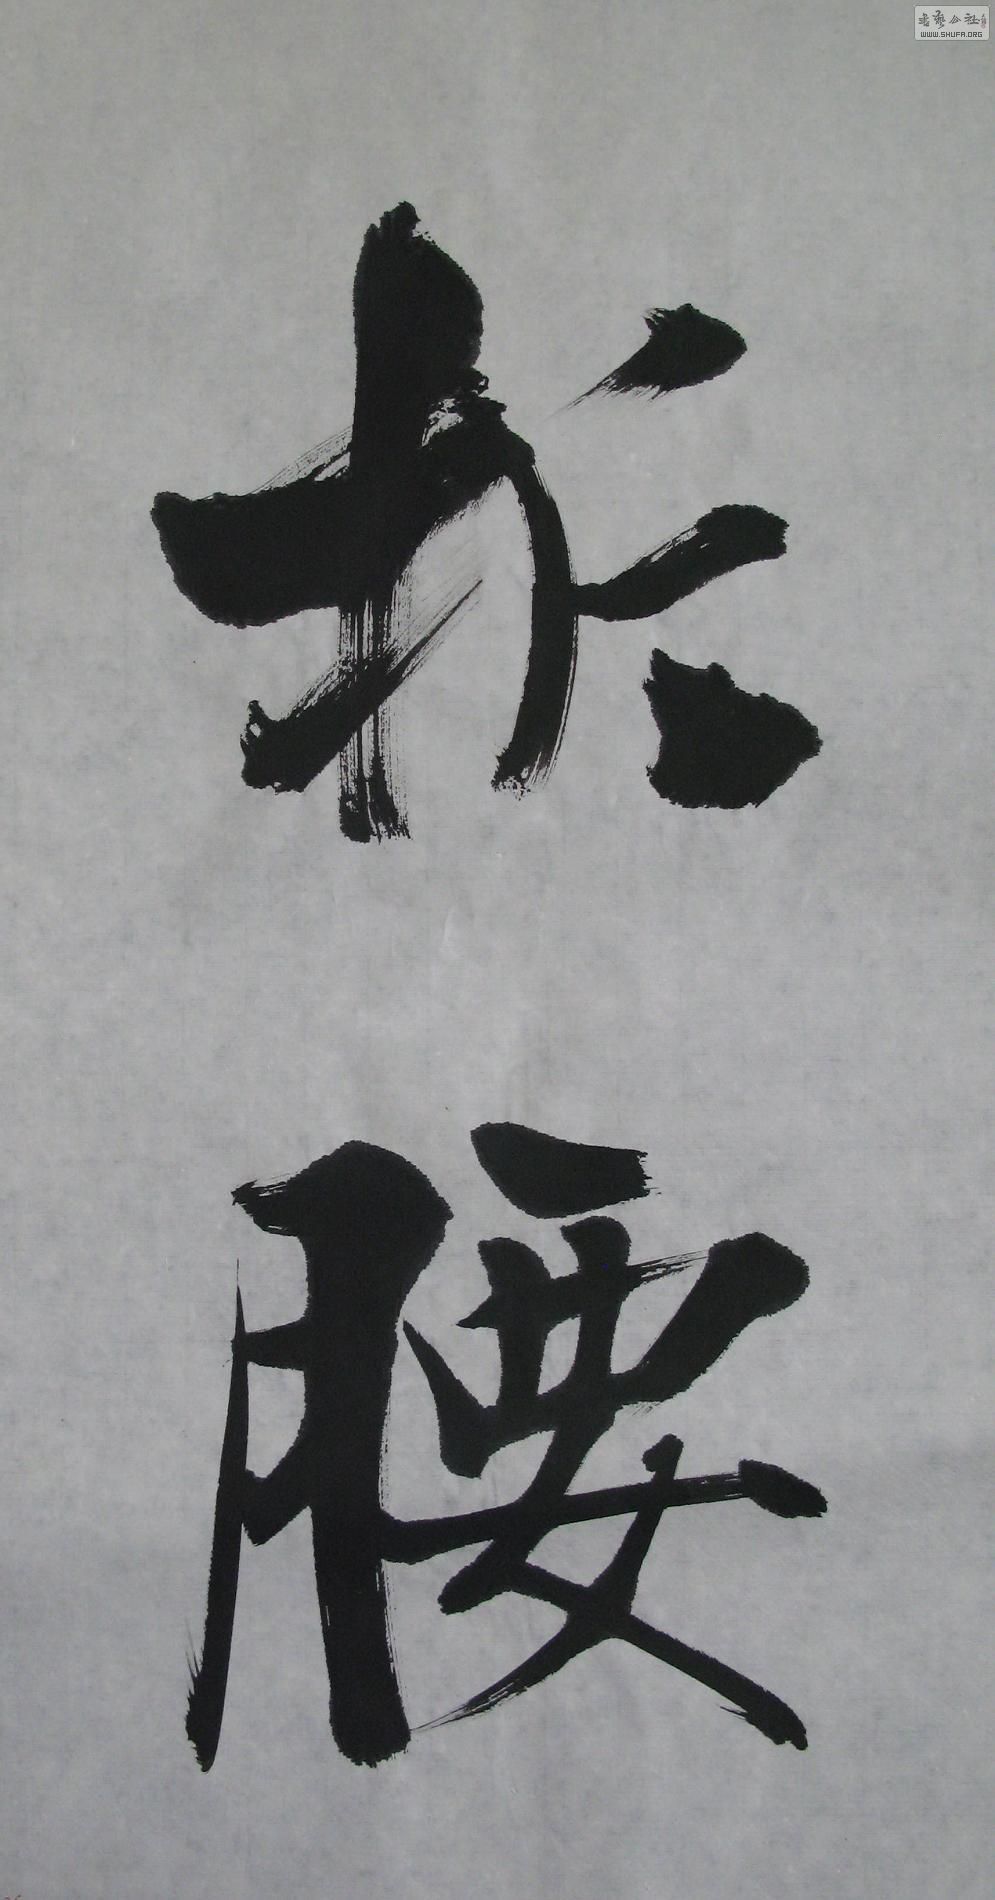 折
腰
书艺公社
WWW.SHUFA.ORG